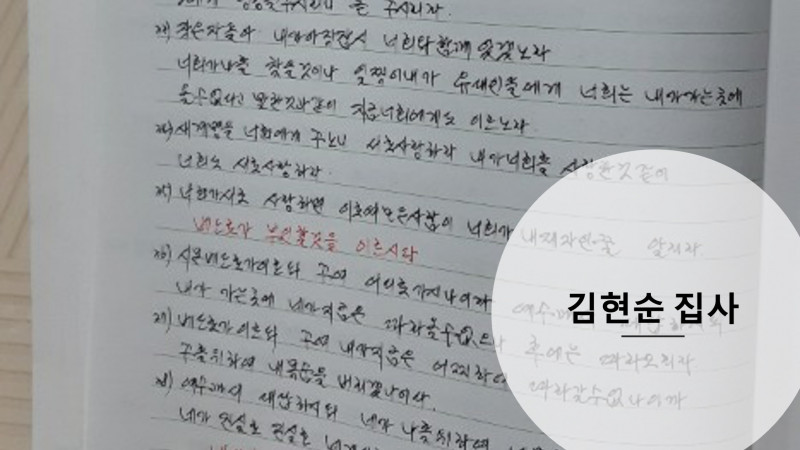 주시리라.
33) 작은자들아 내가아직잠시 너희와함께 있겠노라
너희가나를 찾을것이나 일찍이내가 유대인들에게 너희는 내가가는곳에
올수없다고 말한것과같이 지금너희에게도 이르노라.
34) 새계명을 너희에게 주노니 서로사랑하라 내가너희를 사랑한것같이
너희도 서로사랑하라.
35) 너희가서로 사랑하면 이로써모든사람이 너희가 내제자인줄 알리라
베드로가 부인할것을 이르시다
36) 시몬베드로가이르되 주여 어디로가시나이까 예수께서 대답하시되
내가 가는곳에 네가지금은 따라올수없으나 후에는 따라오리라
37) 베드로가이르되 주여 내가지금은 어찌하여 따라갈수없나이까
주를위하여 내목숨을 버리겠나이다.
38) 예수께서 대답하시되 네가 나를위하여
진실로 진실로
김현순 집사